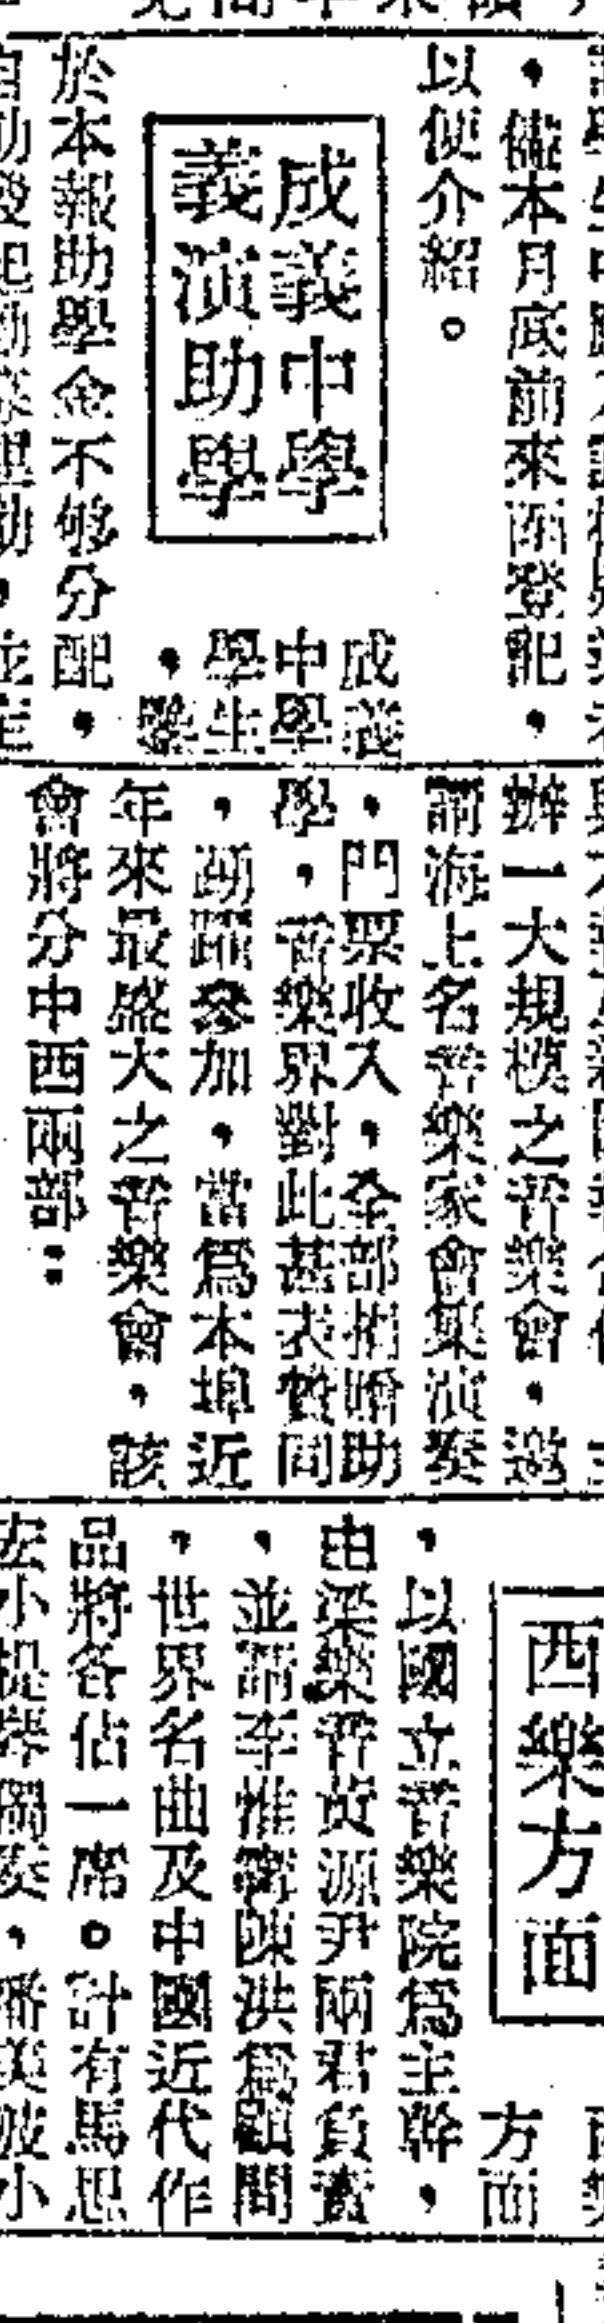 ，儘本月底前來函登記，
以便介紹。
成義中學
義演助學
成義
中學
學生
，鑒
於本報助學金不够分配，
辦一大規模之音樂會，邀
請海上名音樂家會集演奏
，門票收入，全部捐贈助
學，音樂界對此甚表贊同
，踴躍參加，當爲本埠近
年來最盛大之音樂會，該
會將分中西兩部：
西樂方面
方面
，以國立音樂院爲主幹，
由梁樂音黃源尹兩君負責
，並請李惟寗陳洪爲顧問
，世界名曲及中國近代作
品將各佔一席。計有馬思
宏小提琴獨奏，潘美波小